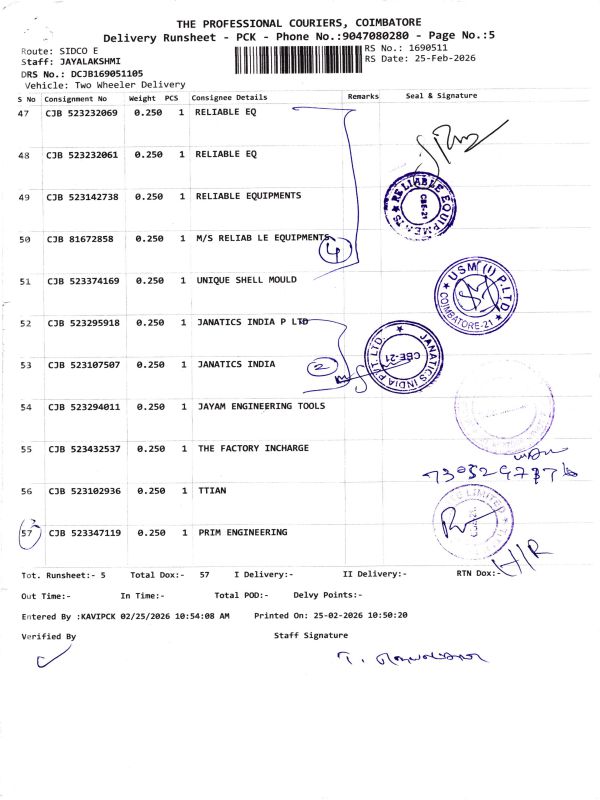 THE PROFESSIONAL COURIERS, COIMBATORE
Delivery Runsheet - PCK - Phone No.:9047080280 - Page No.:5
Route: SIDCO E
RS No.: 1690511
Staff: JAYALAKSHMI
RS Date: 25-Feb-2026
DRS No.: DCJB169051105
Vehicle: Two Wheeler Delivery
S No Consignment No Weight PCS Consignee Details Remarks Seal & Signature
47 CJB 523232069 0.250 1 RELIABLE EQ
48 CJB 523232061 0.250 1 RELIABLE EQ
49 CJB 523142738 0.250 1 RELIABLE EQUIPMENTS
★ RELIABLE EQUIPMENTS
CBE-21
50 CJB 81672858 0.250 1 M/S RELIAB LE EQUIPMENTS
4
51 CJB 523374169 0.250 1 UNIQUE SHELL MOULD
★ USM (I) P.LTD ★
COIMBATORE-21
52 CJB 523295918 0.250 1 JANATICS INDIA P LTD
53 CJB 523107507 0.250 1 JANATICS INDIA
2
★ JANATICS INDIA PVT. LTD.
CBE-21
54 CJB 523294011 0.250 1 JAYAM ENGINEERING TOOLS
55 CJB 523432537 0.250 1 THE FACTORY INCHARGE
56 CJB 523102936 0.250 1 TTIAN
57 CJB 523347119 0.250 1 PRIM ENGINEERING
H/R
Tot. Runsheet:- 5 Total Dox:- 57 I Delivery:- II Delivery:- RTN Dox:-
Out Time:- In Time:- Total POD:- Delvy Points:-
Entered By :KAVIPCK 02/25/2026 10:54:08 AM Printed On: 25-02-2026 10:50:20
Verified By Staff Signature